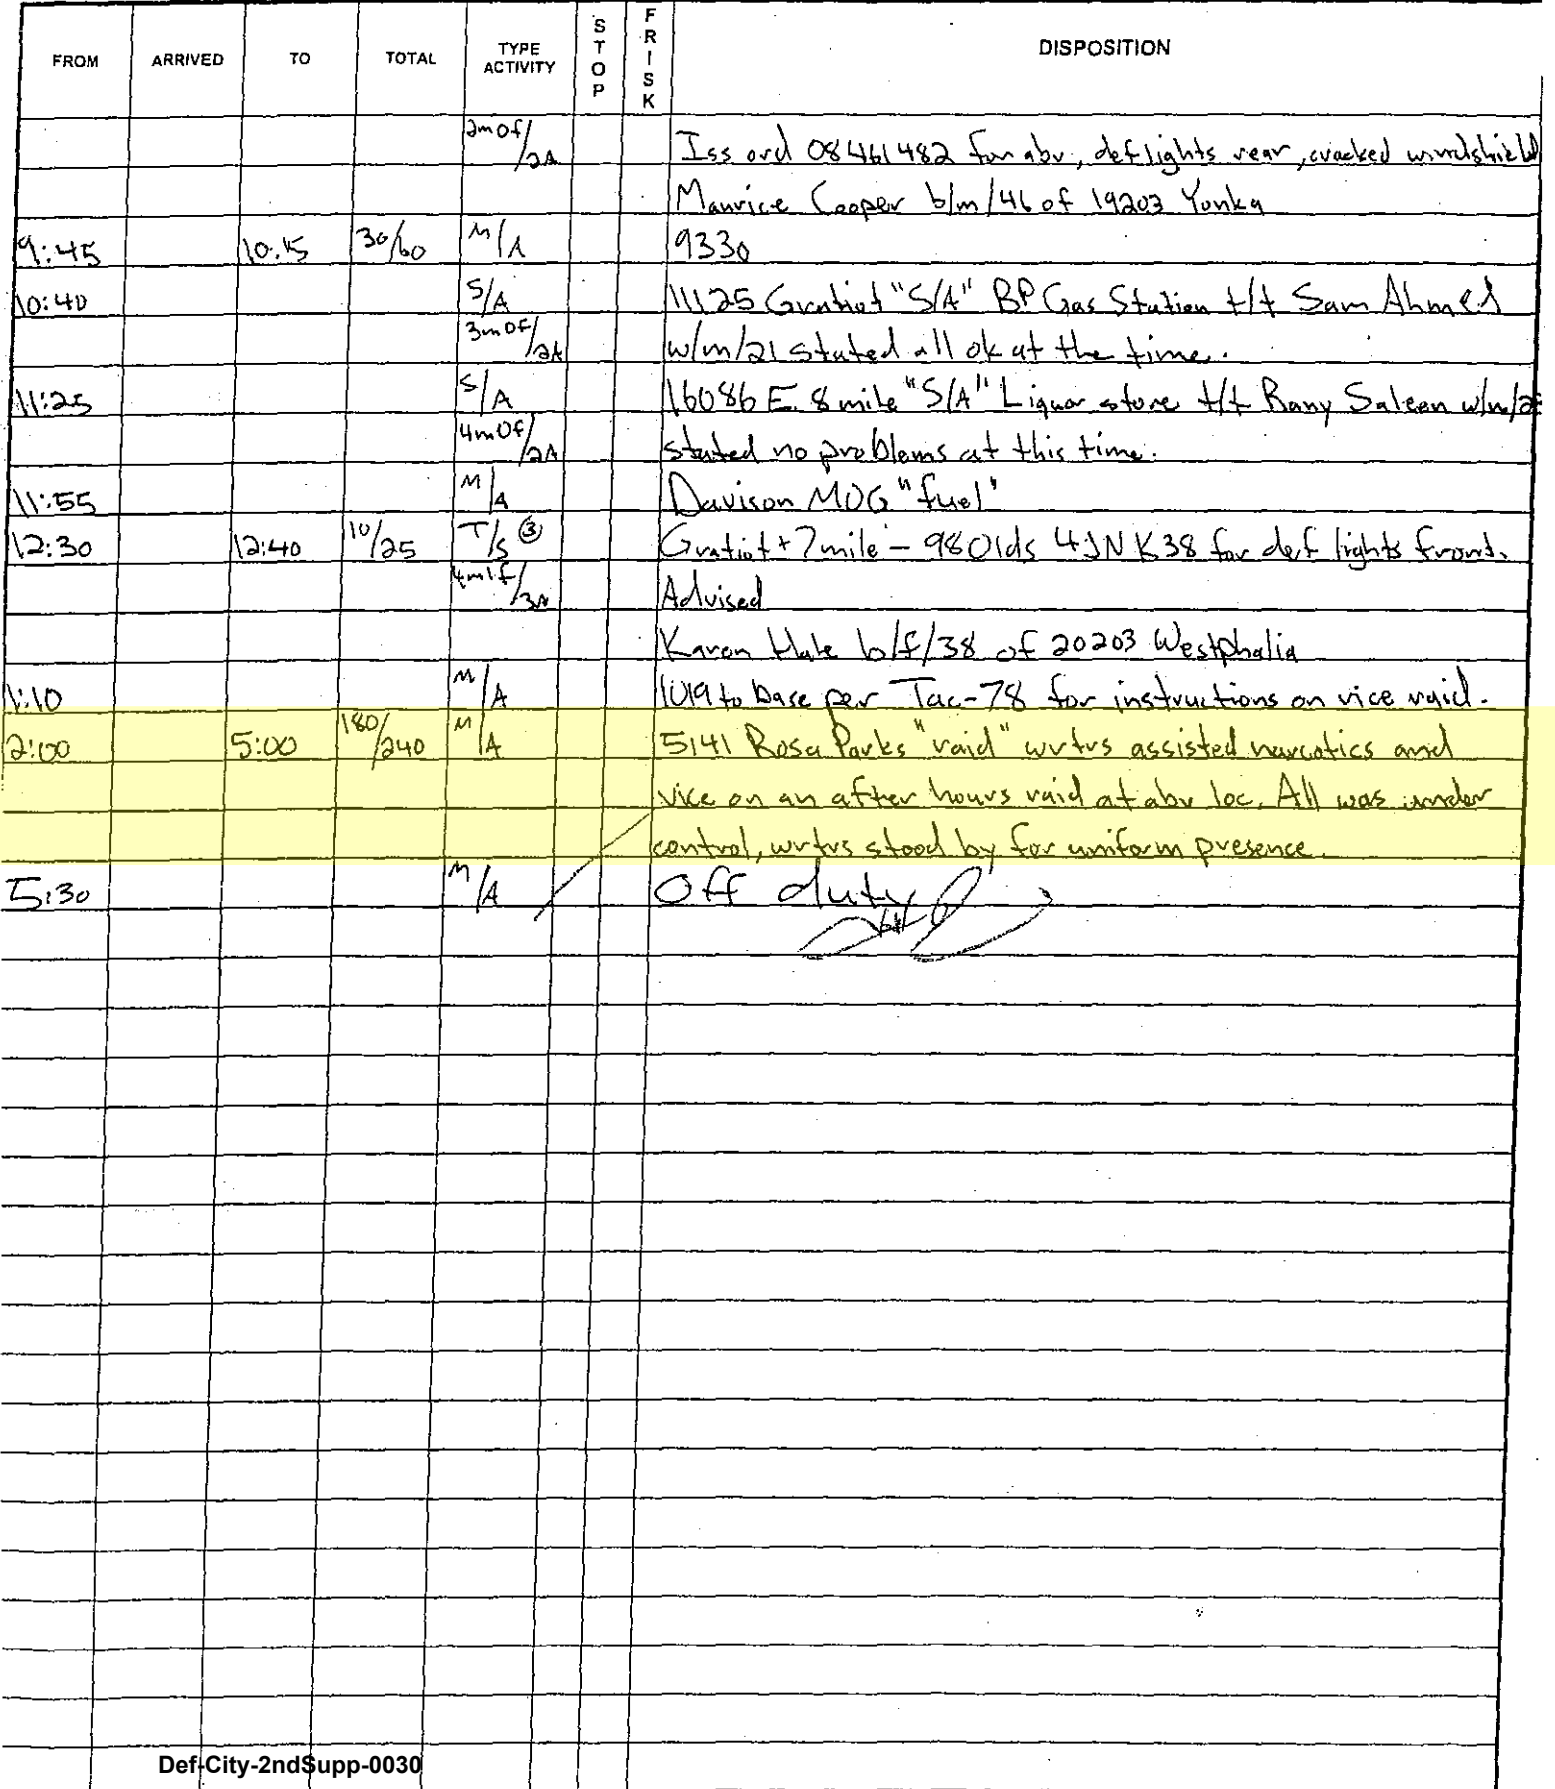 FROM ARRIVED TO TOTAL TYPE ACTIVITY STOP FRISK DISPOSITION
2m0f/2A Iss ord 08461482 for abv, def lights rear, cracked windshield
Maurice Cooper b/m/46 of 19203 Yonka
9:45 10:15 30/60 M/A 9330
10:40 S/A 11125 Gratiot "S/A" BP Gas Station t/t Sam Ahmed
3m0f/2A w/m/21 stated all ok at the time.
11:25 S/A 16086 E. 8 mile "S/A" Liquor store t/t Rany Saleen w/m/
4m0f/2A stated no problems at this time.
11:55 M/A Davison MOG "fuel"
12:30 12:40 10/25 T/S ③ Gratiot + 7 mile - 98 Olds 4JNK38 for def lights front.
4m1f/3A Advised
Karen Hale b/f/38 of 20203 Westphalia
1:10 M/A 1019 to base per Tac-78 for instructions on vice raid.
2:00 5:00 180/240 M/A 5141 Rosa Parks "raid" wrtrs assisted narcotics and
vice on an after hours raid at abv loc. All was under
control, wrtrs stood by for uniform presence.
5:30 M/A Off duty
Def-City-2ndSupp-0030